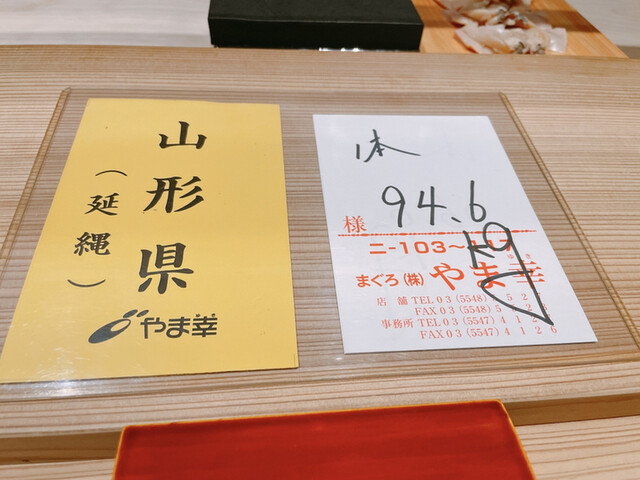 山形県
(延縄)
やま幸
1本
94.6
様
ニ-103〜117
まぐろ(株)やま幸
ゆき
店舗 TEL 03 (5548)
FAX 03 (5548)
事務所 TEL 03 (5547) 41
FAX 03 (5547) 4126